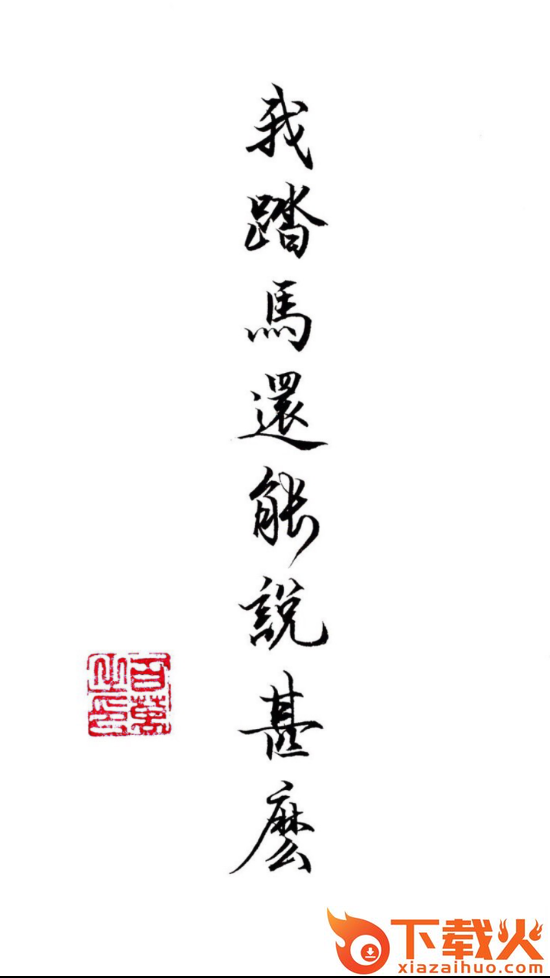 我踏馬還能說甚麼
百萬之印
下载火
xiazaihuo.com